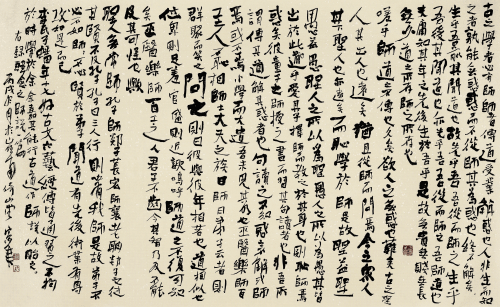 古之學者必有師師者所以傳道受業解惑也人非生而知
之者孰能無惑惑而不從師其為惑也終不解矣
生乎吾前其聞道也固先乎吾吾從而師之生乎
吾後其聞道也亦先乎吾吾從而師之吾師道也
夫庸知其年之先後生於吾乎是故無貴無賤無長
無少道之所存師之所存也
嗟乎師道之不傳也久矣欲人之無惑也難矣古之聖
人其出人也遠矣猶且從師而問焉今之眾人
其下聖人也亦遠矣而恥學於師是故聖益聖
愚益愚聖人之所以為聖愚人之所以為愚其皆
出於此乎愛其子擇師而教之於其身也則恥師焉
惑矣彼童子之師授之書而習其句讀者也非吾所
謂傳其道解其惑者也句讀之不知惑之不解或師
焉或不焉小學而大遺吾未見其明也巫醫樂師百
工之人不恥相師士大夫之族曰師曰弟子云者則
群聚而笑之問之則曰彼與彼年相若也道相似也
位卑則足羞官盛則近諛嗚呼師道之不復可知
矣巫醫樂師百工之人君子不齒今其智乃反不能
及其可怪也歟
聖人無常師孔子師郯子萇弘師襄老聃郯子之徒
其賢不及孔子孔子曰三人行則必有我師是故弟子不
必不如師師不必賢於弟子聞道有先後術業有專
攻如是而已
李氏子蟠年十七好古文六藝經傳皆通習之不拘
於時學於余余嘉其能行古道作師說以貽之